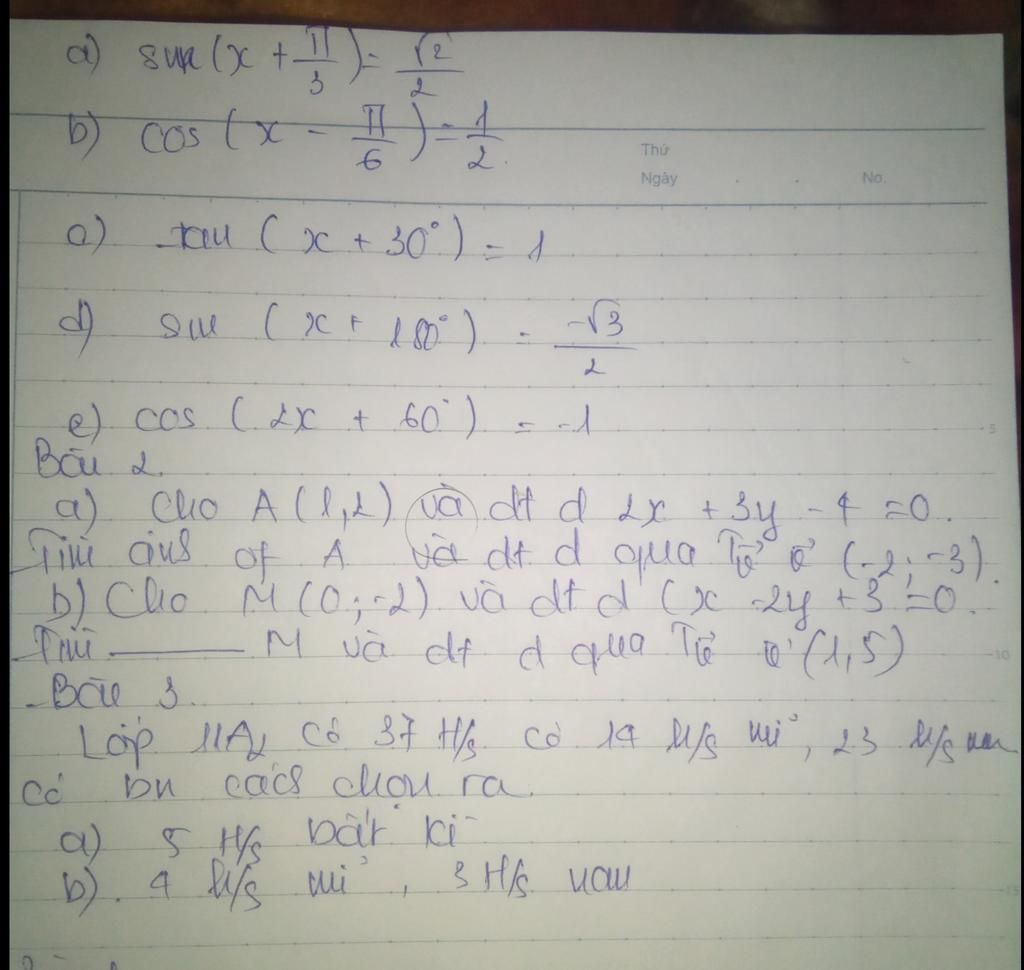 a) sin(x + π/3) = √2/2
b) cos(x - π/6) = 1/2.
Thứ
Ngày . . No.
c) tan (x + 30°) = 1
d) sin (x + 180°) = -√3/2
e) cos (2x + 60°) = -1
5
Bài 2.
a) Cho A (1,2) và dt d 2x + 3y - 4 = 0.
Tìm ảnh of A và dt d qua Tv⃗ v⃗ (-2; -3).
b) Cho M (0; -2) và dt d (x - 2y + 3 = 0.
Tìm ——— M và dt d qua Tv⃗ v⃗ (1,5)
10
Bài 3.
Lớp 11A2 có 37 H/s có 14 H/s nữ, 23 H/s nam
có bn cách chọn ra.
a) 5 H/s bất kì
b). 4 H/s nữ, 3 H/s nam
15